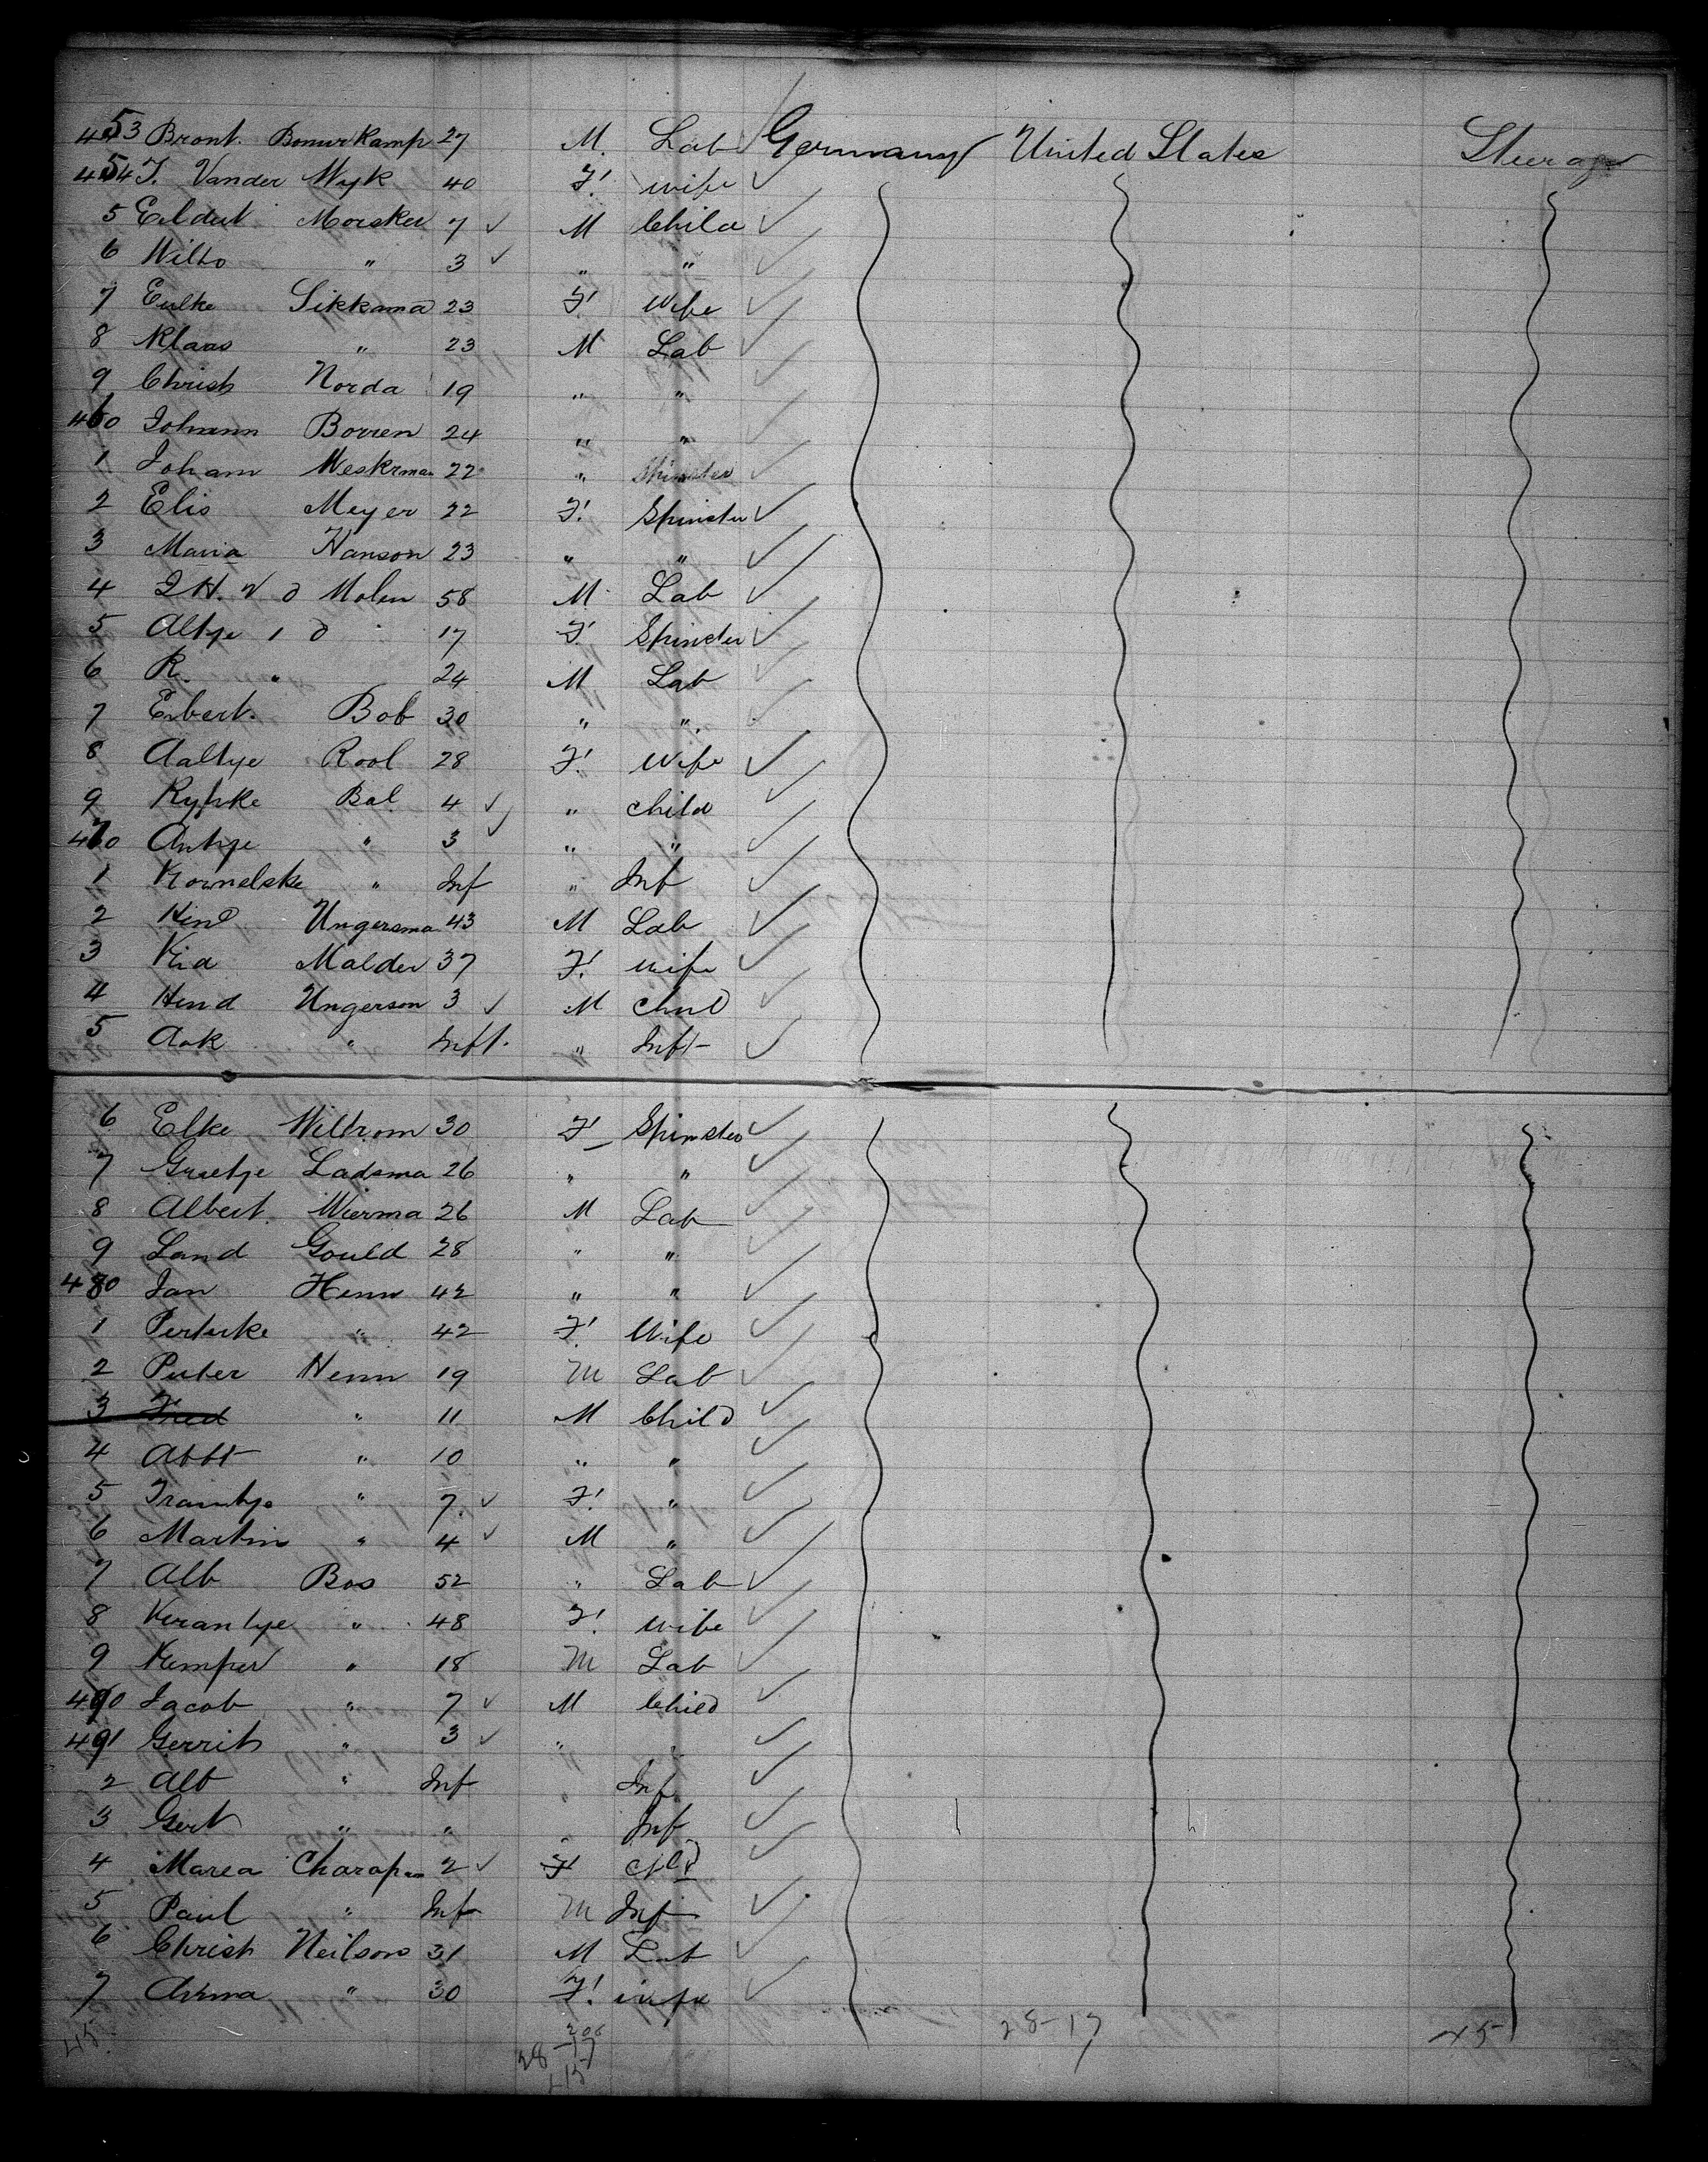 453 Bront. Bonurkamp 27 M. Lab Germany United States Steerage
454 T. Vander Wyk 40 F. wife
5 Eildert Morsker 7 M Child
6 Wilto " 3 " "
7 Eulke Sikkama 23 F Wife
8 Klaas " 23 M Lab
9 Christ Norda 19 " "
460 Johann Borren 24 " "
1 Joham Weskrman 22 " Spinster
2 Elis Meyer 22 F. Spinster
3 Maria Hanson 23 " "
4 J H. v d Molen 58 M. Lab
5 Altje 1 d " 17 F. Spinster
6 R. " 24 M Lab
7 Erbert. Bob 30 " "
8 Aaltye Rool 28 F. Wife
9 Rypke Bal 4 " child
470 Antye " 3 " "
1 Kornelske " Inf " Inf
2 Hind Ungersma 43 M Lab
3 Kia Malder 37 F. wife
4 Hend Ungerson 3 M Chil
5 Aak " Inft. " Inft
6 Elke Wiltrom 30 F Spinster
7 Grietje Ladsma 26 " "
8 Albert. Wierma 26 M Lab
9 Land Gould 28 " "
480 Jan Henn 42 " "
1 Perterke " 42 F. Wife
2 Peiter Henn 19 M Lab
3 Fred " 11 M Child
4 Abbt " 10 " "
5 Traintje " 7. F. "
6 Martin " 4 M "
7 Alb Bos 52 " Lab
8 Krantye " 48 F. wife
9 Kemper " 18 M Lab
490 Jacob " 7 M Child
491 Gerrit " 3 "
2 Alb " Inf " Inf
3 Gert " " " Inf
4 Marea Charap 2 F Chld
5 Paul " Inf M Inf
6 Christ Neilson 31 M Lab
7 Anma " 30 F. wife
45. 28-17 28-17 45
45